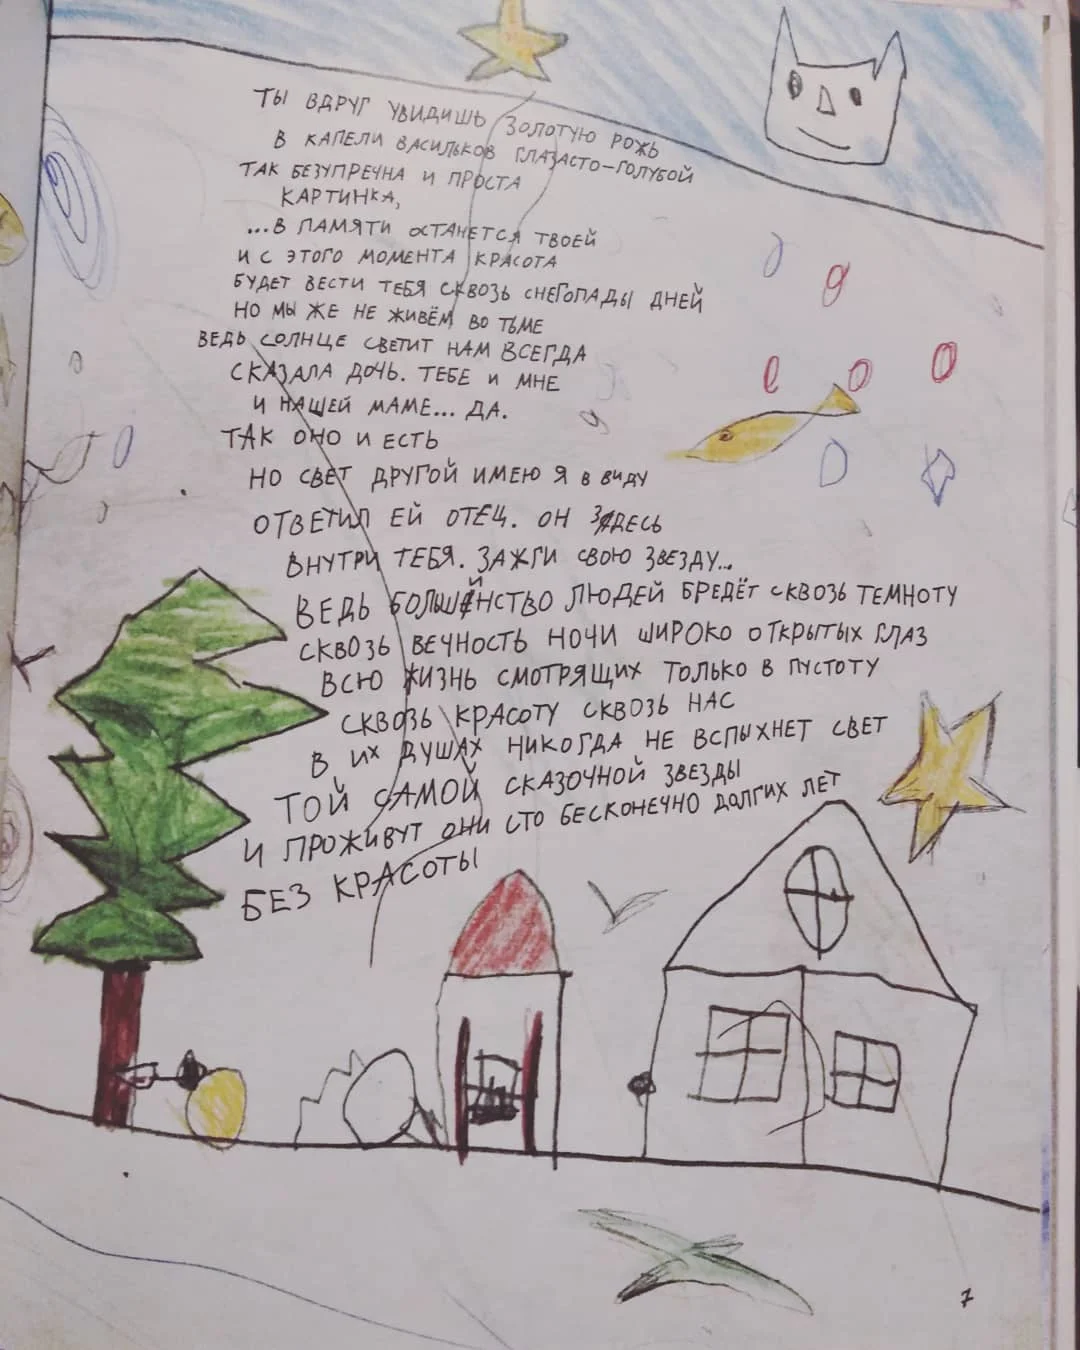 ТЫ ВДРУГ УВИДИШЬ ЗОЛОТУЮ РОЖЬ
В КАПЕЛИ ВАСИЛЬКОВ ГЛАЗАСТО-ГОЛУБОЙ
ТАК БЕЗУПРЕЧНА И ПРОСТА
КАРТИНКА,
...В ПАМЯТИ ОСТАНЕТСЯ ТВОЕЙ
И С ЭТОГО МОМЕНТА КРАСОТА
БУДЕТ ВЕСТИ ТЕБЯ СКВОЗЬ СНЕГОПАДЫ ДНЕЙ
НО МЫ ЖЕ НЕ ЖИВЁМ ВО ТЬМЕ
ВЕДЬ СОЛНЦЕ СВЕТИТ НАМ ВСЕГДА
СКАЗАЛА ДОЧЬ. ТЕБЕ И МНЕ
И НАШЕЙ МАМЕ... ДА.
ТАК ОНО И ЕСТЬ
НО СВЕТ ДРУГОЙ ИМЕЮ Я В ВИДУ
ОТВЕТИЛ ЕЙ ОТЕЦ. ОН ЗДЕСЬ
ВНУТРИ ТЕБЯ. ЗАЖГИ СВОЮ ЗВЕЗДУ...
ВЕДЬ БОЛЬШИНСТВО ЛЮДЕЙ БРЕДЁТ СКВОЗЬ ТЕМНОТУ
СКВОЗЬ ВЕЧНОСТЬ НОЧИ ШИРОКО ОТКРЫТЫХ ГЛАЗ
ВСЮ ЖИЗНЬ СМОТРЯЩИХ ТОЛЬКО В ПУСТОТУ
СКВОЗЬ КРАСОТУ СКВОЗЬ НАС
В ИХ ДУШАХ НИКОГДА НЕ ВСПЫХНЕТ СВЕТ
ТОЙ САМОЙ СКАЗОЧНОЙ ЗВЕЗДЫ
И ПРОЖИВУТ ОНИ СТО БЕСКОНЕЧНО ДОЛГИХ ЛЕТ
БЕЗ КРАСОТЫ
7